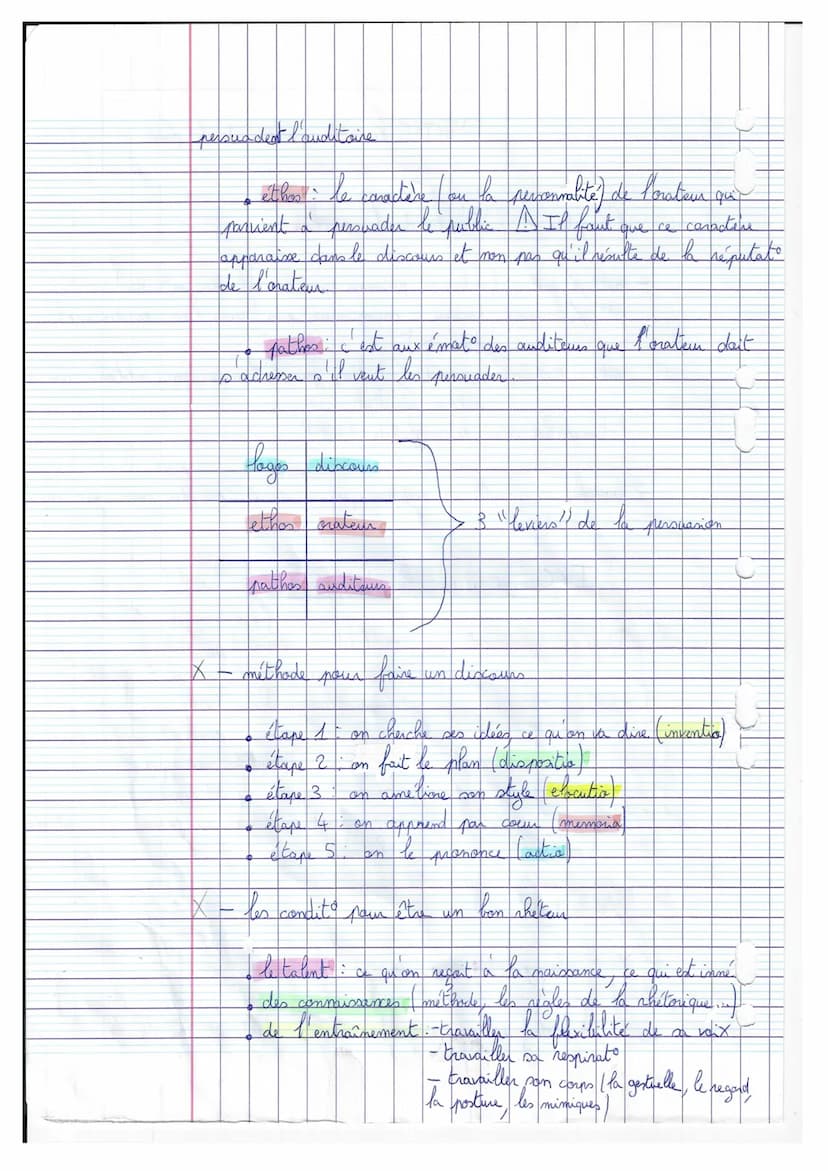 persuadent l'auditoire
• éthos : le caractère (ou la personnalité) de l'orateur qui
parvient à persuader le public ⚠ Il faut que ce caractère
apparaisse dans le discours et non pas qu'il résulte de la réputat°
de l'orateur.
• pathos : c'est aux émot° des auditeurs que l'orateur doit
s'adresser s'il veut les persuader.
logos discours
ethos orateur
3 "leviers" de la persuasion
pathos auditeurs
X - méthode pour faire un discours
• étape 1 : on cherche ses idées, ce qu'on va dire (inventio)
• étape 2 : on fait le plan (dispositio)
• étape 3 : on améliore son style (elocutio)
• étape 4 : on apprend par coeur (memoria)
• étape 5 : on le prononce (actio)
X - les condit° pour être un bon rhéteur
• le talent : ce qu'on reçoit à la naissance, ce qui est inné
• des connaissances (méthode, les règles de la rhétorique...)
• de l'entraînement : - travailler la flexibilité de sa voix
- travailler sa respirat°
- travailler son corps (la gestuelle, le regard,
la posture, les mimiques)